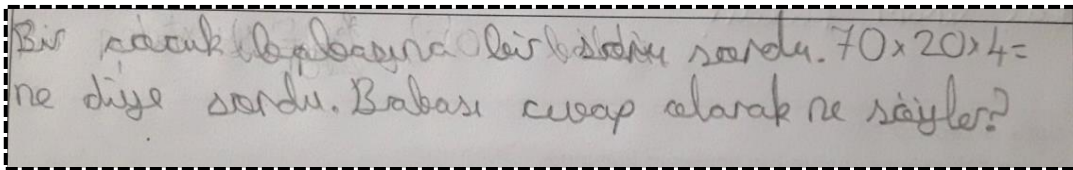 Bir çocuk babasına bir soru sordu. 70x20x4=
ne diye sordu. Babası cevap olarak ne söyler?